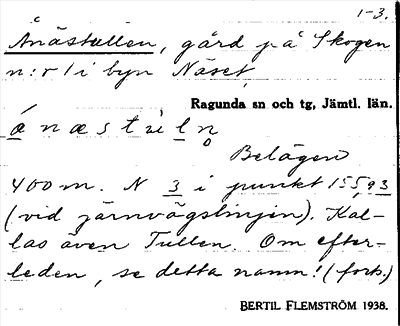 1-3.
Ånästullen, gård på Skogen
n:r 1 i byn Näset,
Ragunda sn och tg, Jämtl. län.
Belägen
400 m. N 3 i punkt 155,93
(vid järnvägslinjen). Kal-
las även Tullen. Om efter-
leden, se detta namn! (forts.)
BERTIL FLEMSTRÖM 1938.